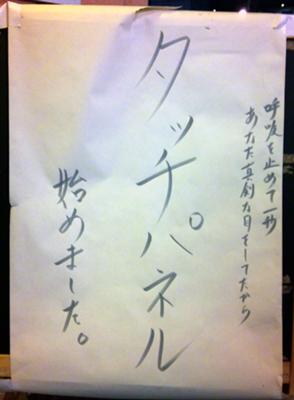 呼吸を止めて一秒
あなた真剣な目をしてたから
タッチパネル
始めました。